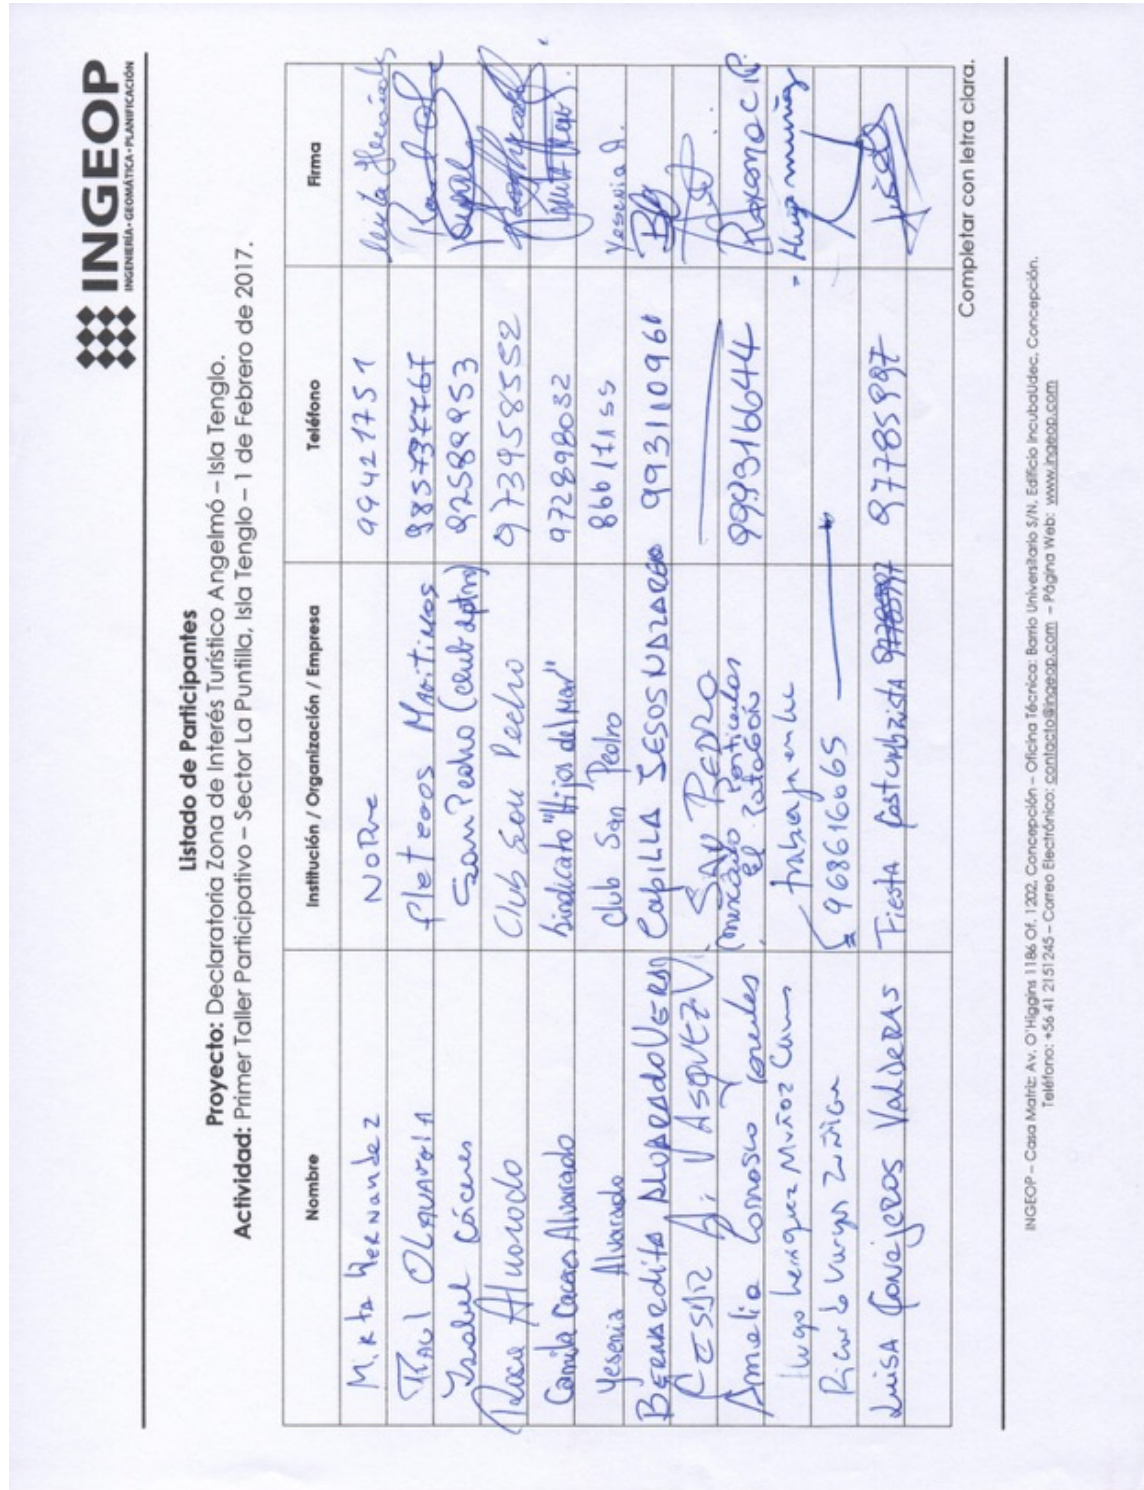 INGEOP
INGENIERÍA • GEOMÁTICA • PLANIFICACIÓN
Listado de Participantes
Proyecto: Declaratoria Zona de Interés Turístico Angelmó – Isla Tenglo.
Actividad: Primer Taller Participativo – Sector La Puntilla, Isla Tenglo – 1 de Febrero de 2017.
Nombre Institución / Organización / Empresa Teléfono Firma
Mirta Hernandez 99421751
Raul Olavarría fleteros Maritimos
Isabel Cáceres San Pedro (club 92589953
Rosa Alvarado Club San Pedro 973958552
Camila Caceres Alvarado Sindicato "Hijos del Mar" 972898032
Yesenia Alvarado club San Pedro 86617155 Yesenia A.
BERNARDITA ALVARADO VERA CAPILLA JESOS NAZARENO 993110960
CESAR A. VASQUEZ V. SAN PEDRO
Amelia 999316644
Hugo Muñoz Hugo muñoz
Ricardo Vargas Zuñiga 96861606S
Luisa Conejeros Valderas Fiesta Costumbrista 97785997
Completar con letra clara.
INGEOP – Casa Matriz: Av. O'Higgins 1186 Of. 1202, Concepción – Oficina Técnica: Barrio Universitario S/N, Edificio IncubaUdec, Concepción.
Teléfono: +56 41 2151245 – Correo Electrónico: contacto@ingeop.com – Página Web: www.ingeop.com